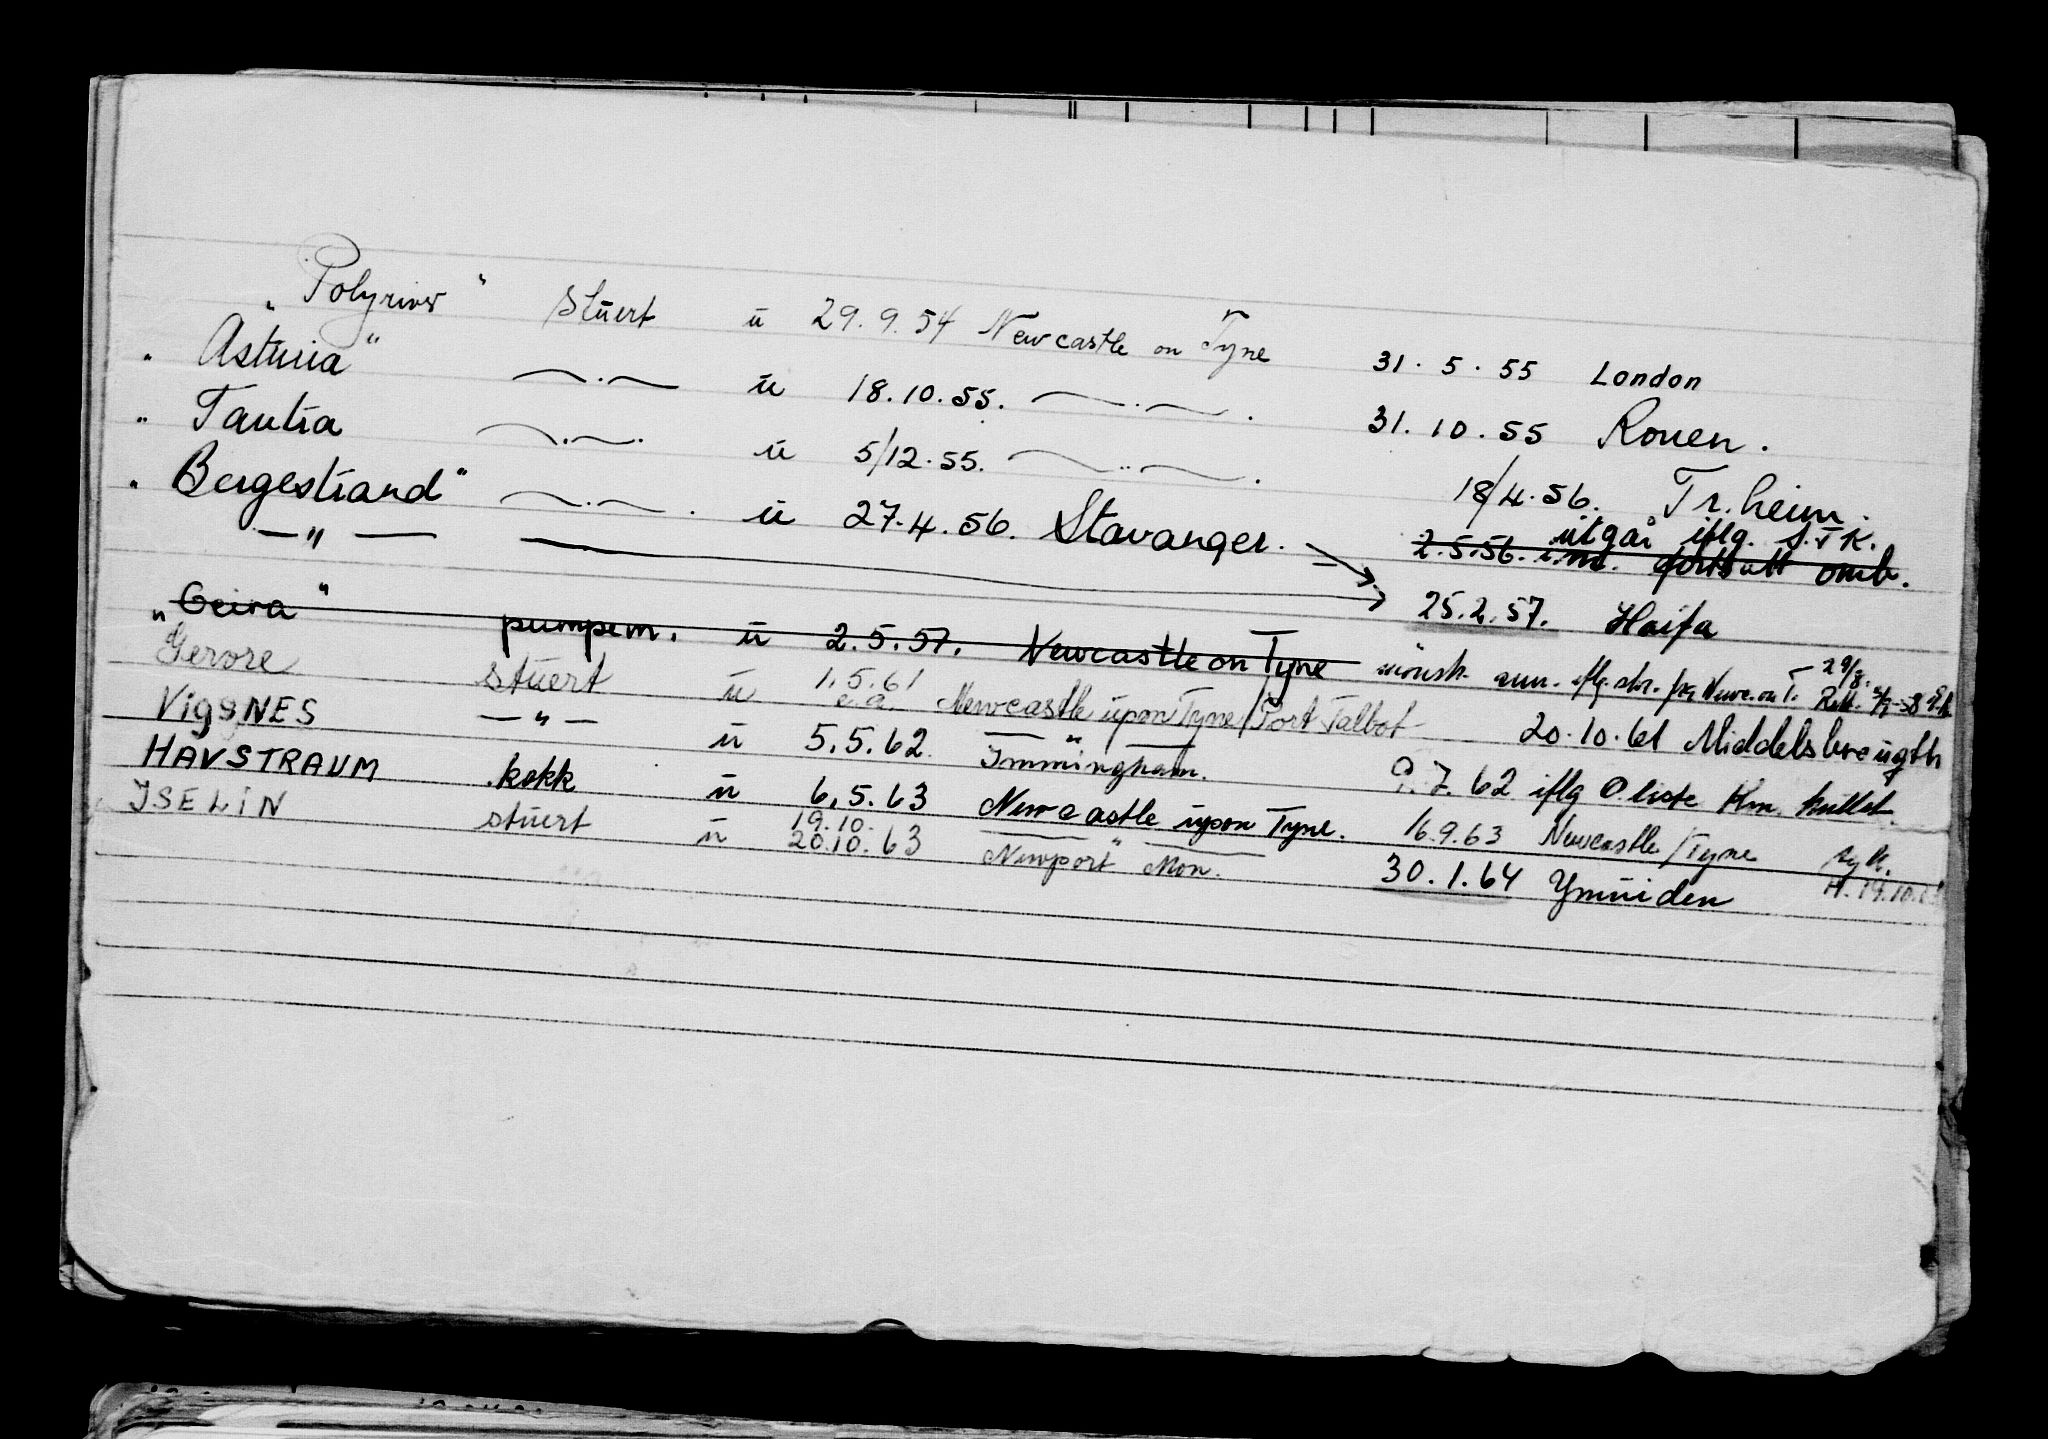 "Polyriver" stuert u 29.9.54 Newcastle on Tyne 31.5.55 London
"Asturia" —.— u 18.10.55. —.—. 31.10.55 Rouen.
" Tautra —.—. u 5/12.55. —..—. 18/4.56. Tr.heim.
"Bergestrand" —.—. u 27.4.56. Stavanger. 2.5.56. i.m. fortsatt omb.
utgår iflg. S.T.K.
—"— 25.2.57. Haifa
"Geira" pumpem. u 2.5.57. Newcastle on Tyne mönstr. ann. iflg. skr. fra Newc. on T. 29/8.
Gerore stuert u 1.5.61 e.a. Newcastle upon Tyne/Port Talbot 20.10.61 Middelsbrough
VIGSNES —"— u 5.5.62 —"— Immingham. 9.7.62 iflg O.liste Km. kullet.
HAVSTRAUM kokk u 6.5.63 Newcastle upon Tyne. 16.9.63 Newcastle/Tyne syk.
ISELIN stuert u 19.10. 20.10.63 —"— Newport Mon. 30.1.64 Ymuiden H. 19.10.63